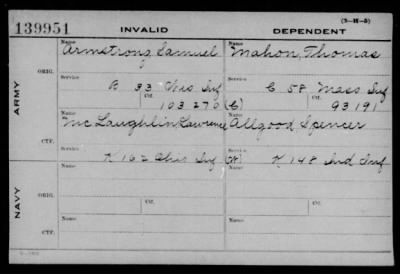 (3-H-5)
139951 INVALID DEPENDENT
Name Name
Armstrong Samuel Mahon, Thomas
ORIG.
Service Service
B 33 Ohio Inf C 58 Mass Inf
Ctf. Ctf.
103270 (C) 93191
ARMY
Name Name
McLaughlin Lawrence Allgood Spencer
CTF.
Service Service
K 162 Ohio Inf (W) K 148 Ind Inf
Name Name
ORIG.
Service Service
Ctf. Ctf.
NAVY
Name Name
CTF.